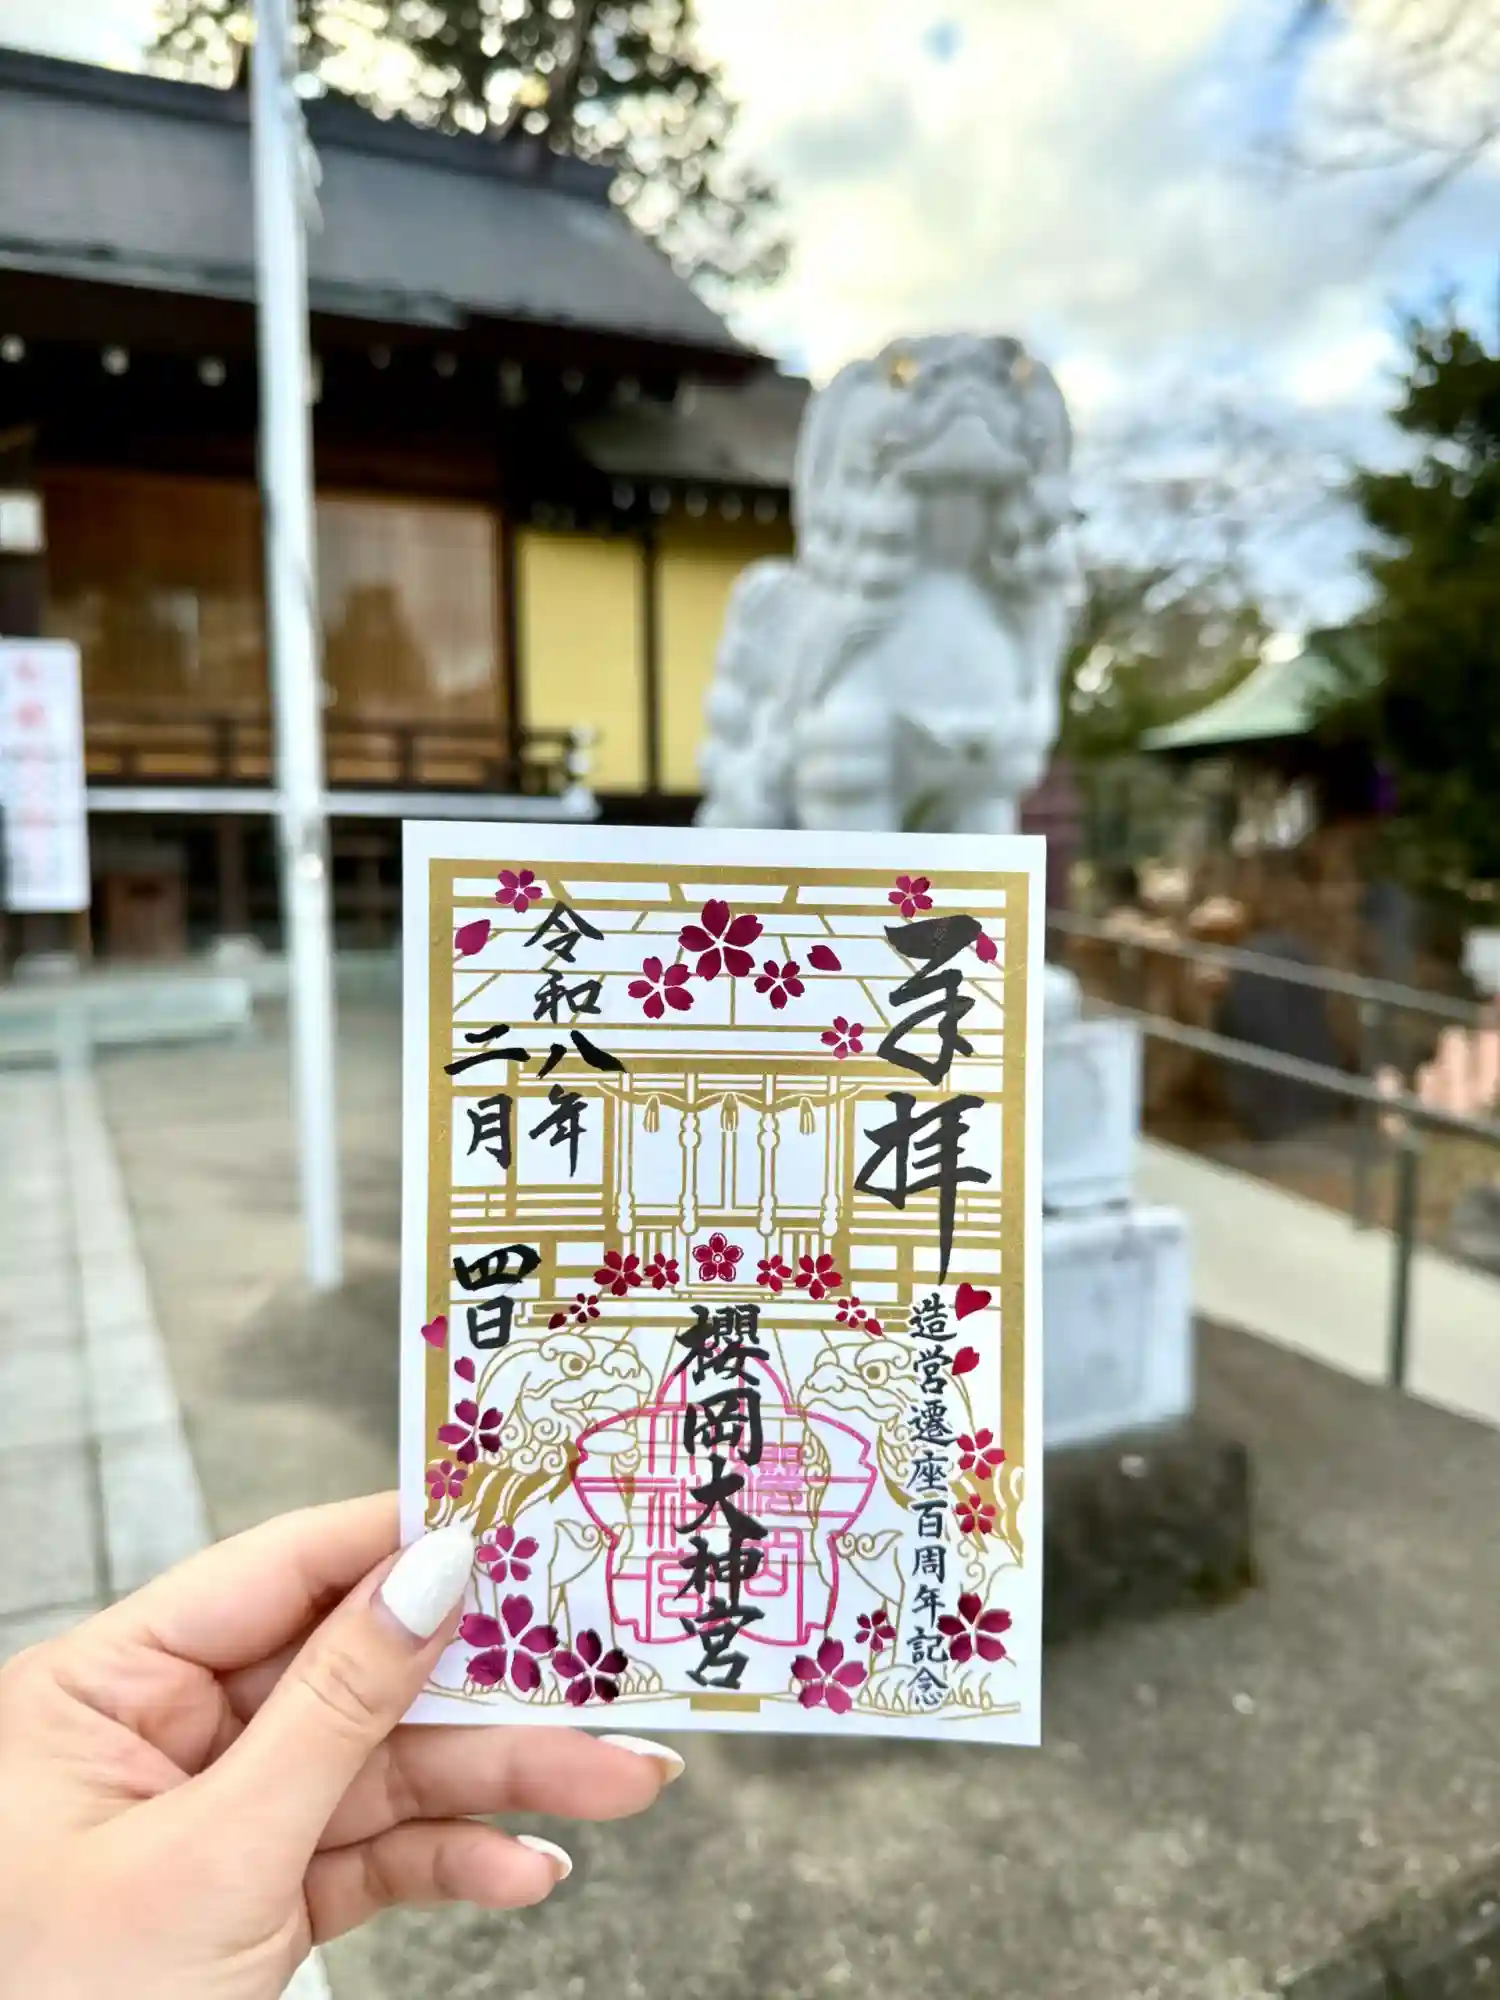 奉拝
造営遷座百周年記念
櫻岡大神宮
令和八年
二月四日